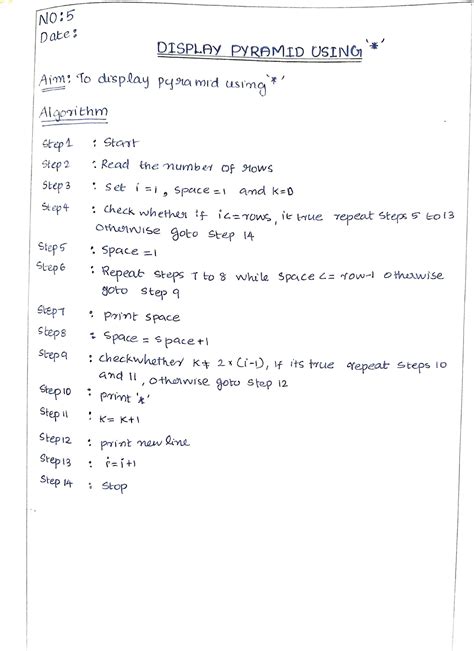 NO:5
Date:
DISPLAY PYRAMID USING '*'
Aim: To display pyramid using '*'
Algorithm
Step1 : Start
Step2 : Read the number of rows
Step3 : Set i=1, space=1 and K=0
Step4 : Check whether if i<=rows, it true repeat steps 5 to 13
otherwise goto step 14
Step5 : Space =1
Step6 : Repeat steps 7 to 8 while space <= row-1 otherwise
goto step 9
Step7 : print space
Step8 : Space = space+1
Step9 : Checkwhether K≠ 2*(i-1), if its true repeat steps 10
and 11, otherwise goto step 12
Step10 : print '*'
Step11 : K= K+1
Step12 : print newline
Step13 : i=i+1
Step14 : Stop